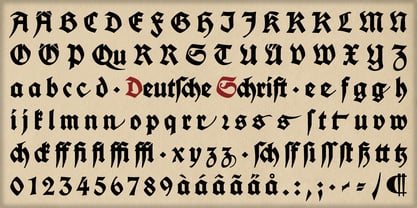 A Ä B C D E F G H I J K K K L M N
O Ö P Qu R R S T U U V W X Y Z
a a b c c d · Deutſche Schrift · e e f g g h
i j k l m n n o p q r r ꝛ s s s ſ t t r u v w
ch ck ff fi fl ffi ffl · x y z ʒ ʒ · ſch ſſ ſi ſſ ſt ß tt tz
0 1 2 3 4 5 6 7 8 9 à á â ã ä å . : , ; · - = / ¶